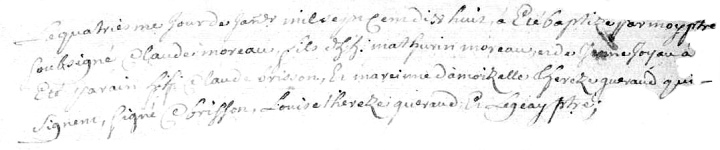 Le quatriesme Jour de Janvr mil sept Cent dix huit, a Eté baptisé par moy ptre
Soubsigné Claude moreau, fils de h. mathurin moreau, et de Jeanne Joyau a
Eté parain h. Claude brisson, Et mareinne damoizelle thereze queraud qui
Signent, signé C brisson, Louise thereze queraud Et Legeay ptre,